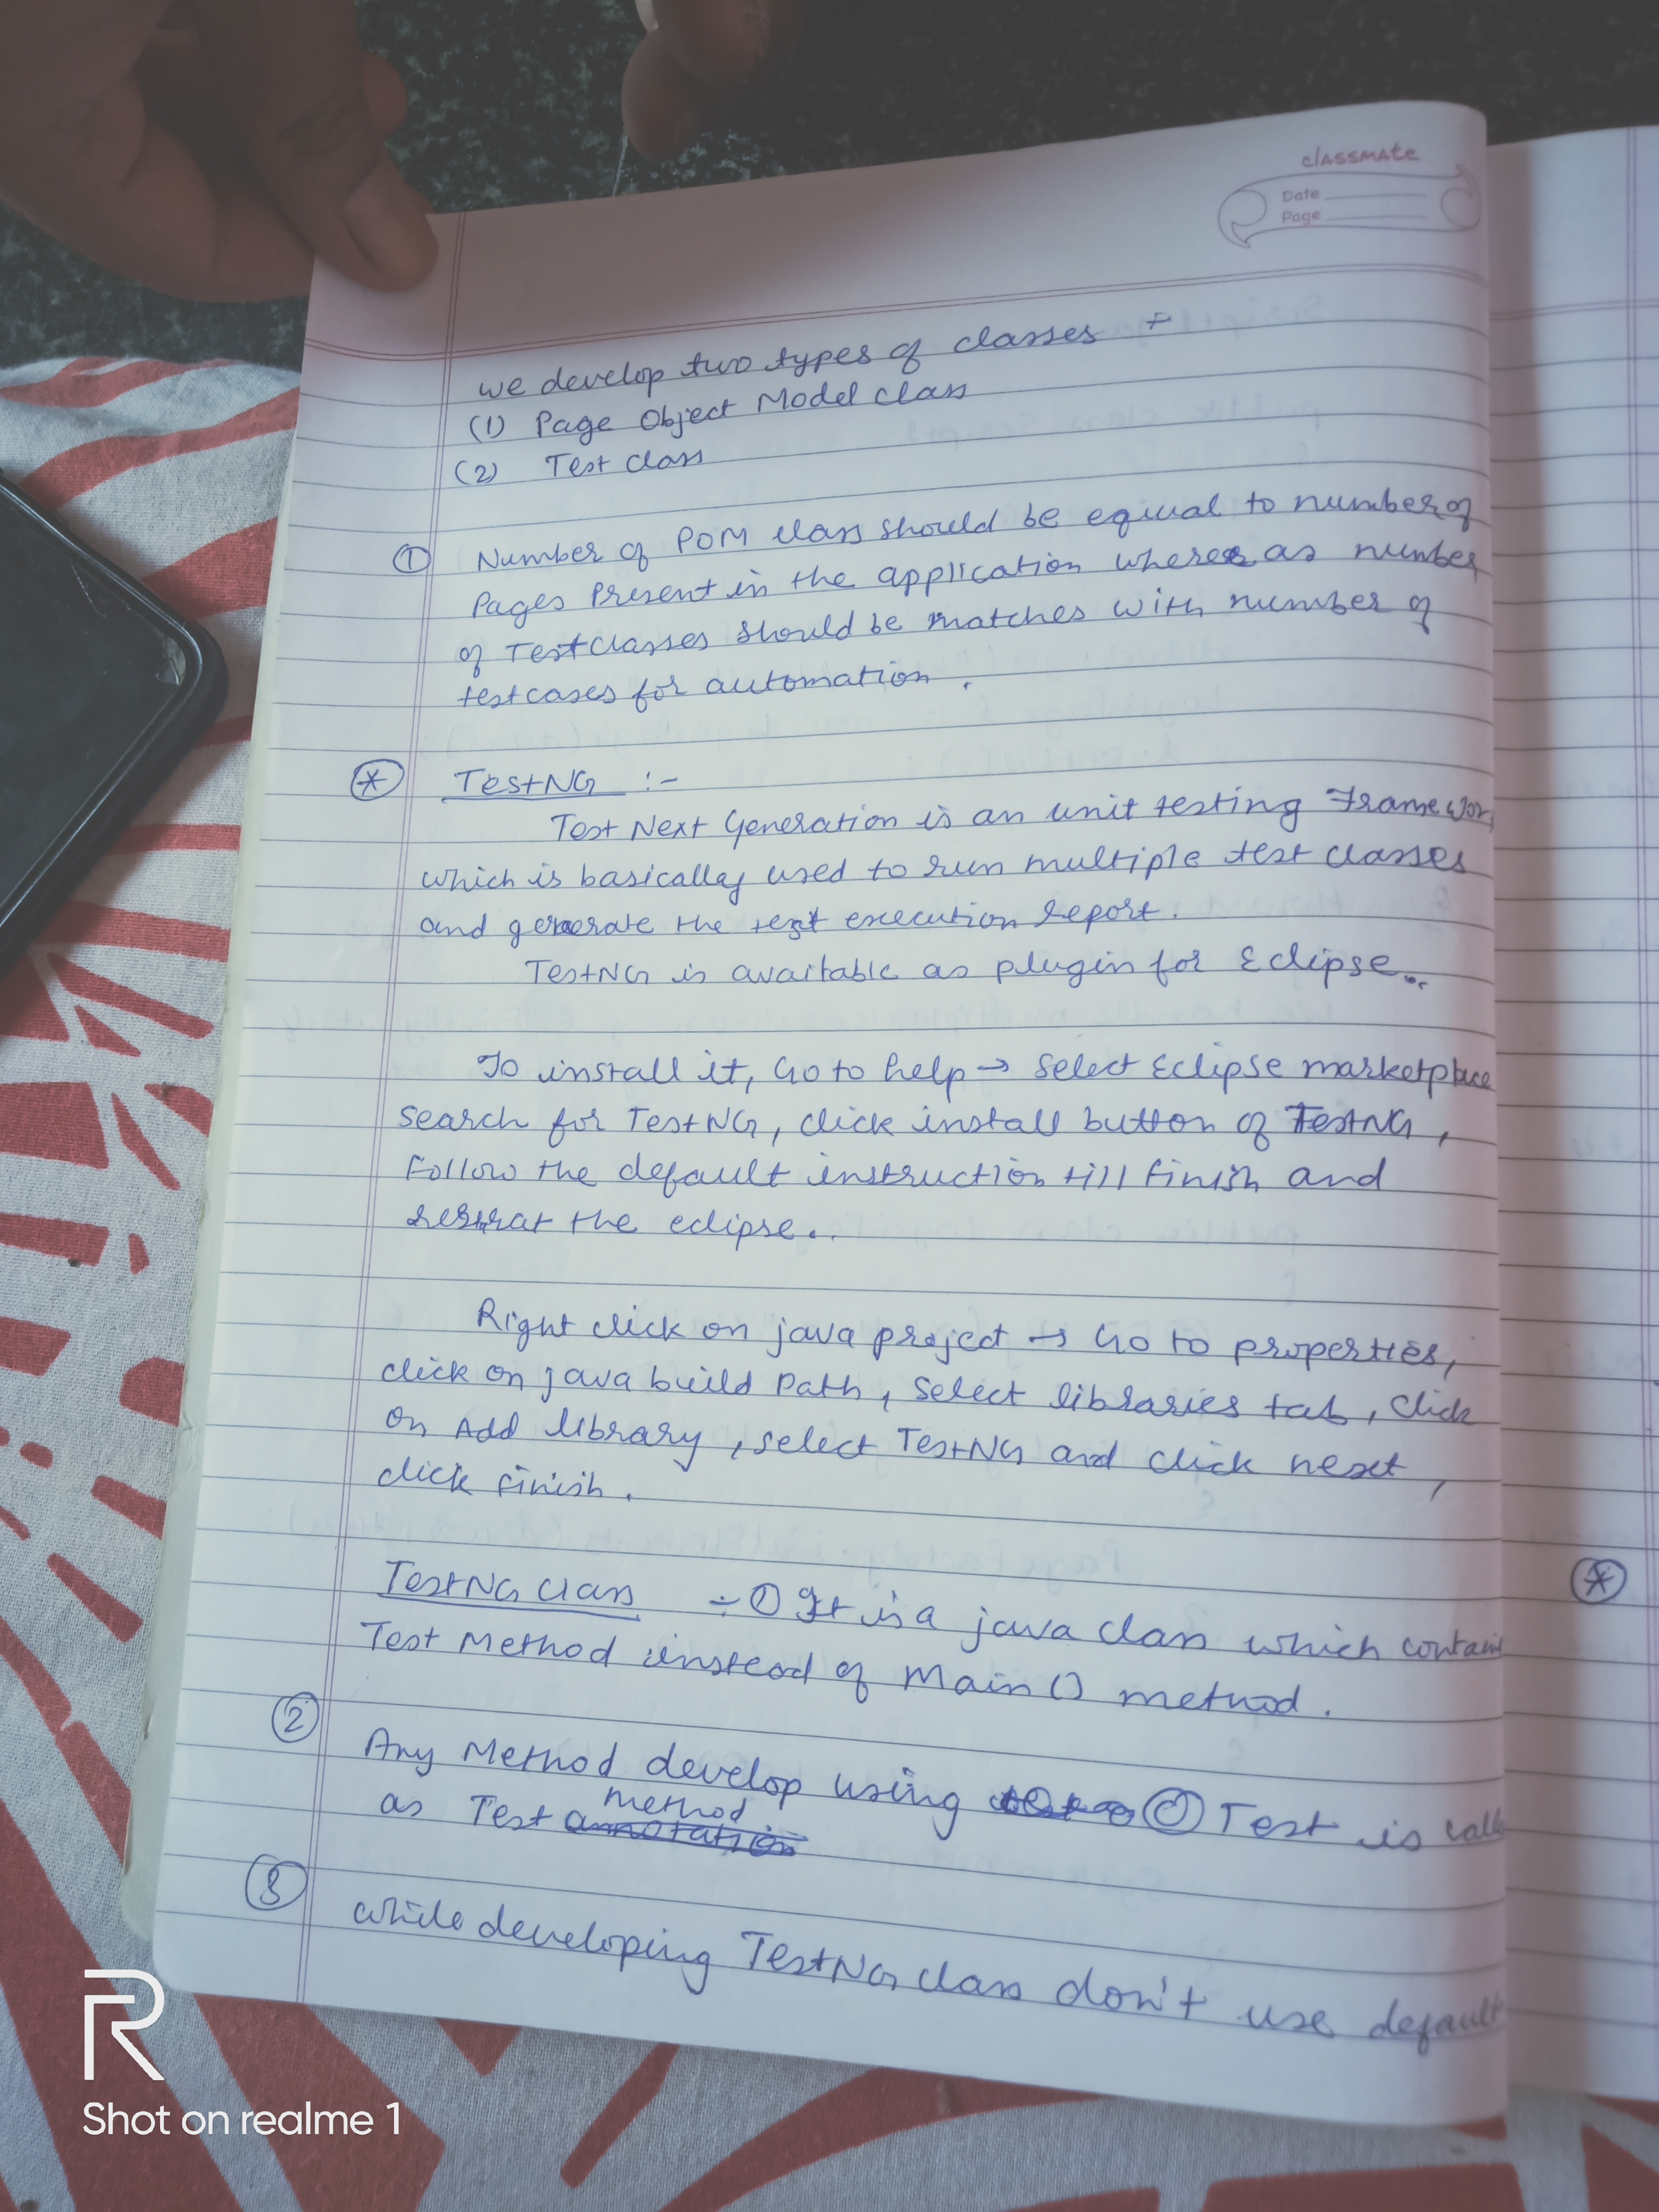 classmate
Date
Page
we develop two types of classes ÷
(1) Page Object Model class
(2) Test class
① Number of POM class should be equal to number of
Pages Present in the application where as number
of Testclasses should be matches with number of
testcases for automation .
* TestNG :-
Test Next Generation is an unit testing Framewor
which is basically used to run multiple test classes
and generate the test execution report.
TestNG is available as plugin for Eclipse..
To install it, Go to help → Select Eclipse marketplace
search for TestNG, click install button of TestNG,
Follow the default instruction till finish and
the eclipse..
Right click on java project → Go to properties,
click on java build Path, Select libraries tab, click
on Add library, select TestNG and click next,
click finish.
TestNG class ÷ ① It is a java class which contain
Test Method instead of Main() method.
②
Any Method develop using @ Test is calle
method
as Test annotation
③
while developing TestNG class don't use default
*
R
Shot on realme 1